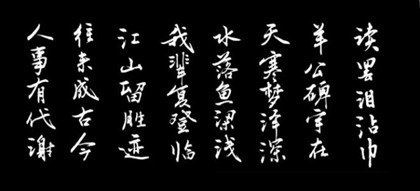 人事有代谢
往来成古今
江山留胜迹
我辈复登临
水落鱼梁浅
天寒梦泽深
羊公碑字在
读罢泪沾巾